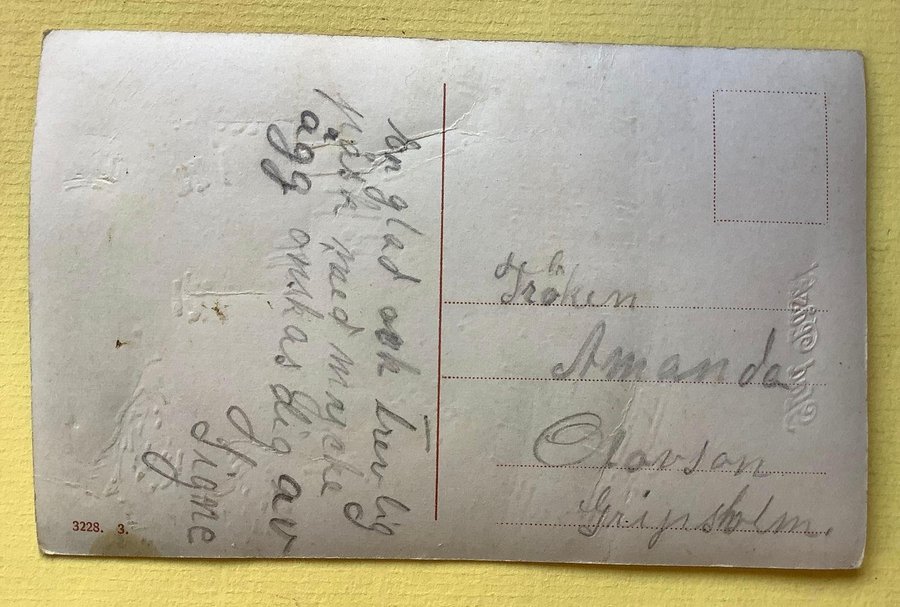 En glad och trevlig
Påsk med mycke
ägg onskas dig av
Signe
Fröken
Amanda
Olovson
Gripsholm.
3228. 3.